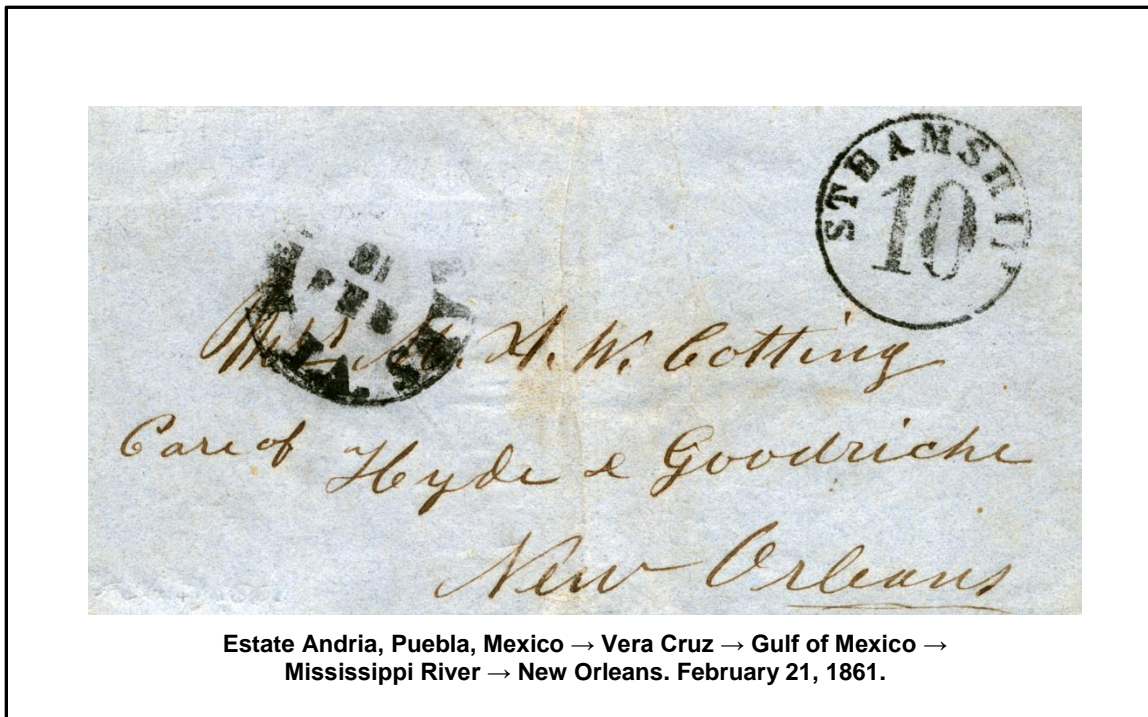 STEAMSHIP
10
LA.
M. A. W. Cotting
Care of Hyde & Goodriche
New Orleans
Estate Andria, Puebla, Mexico → Vera Cruz → Gulf of Mexico →
Mississippi River → New Orleans. February 21, 1861.